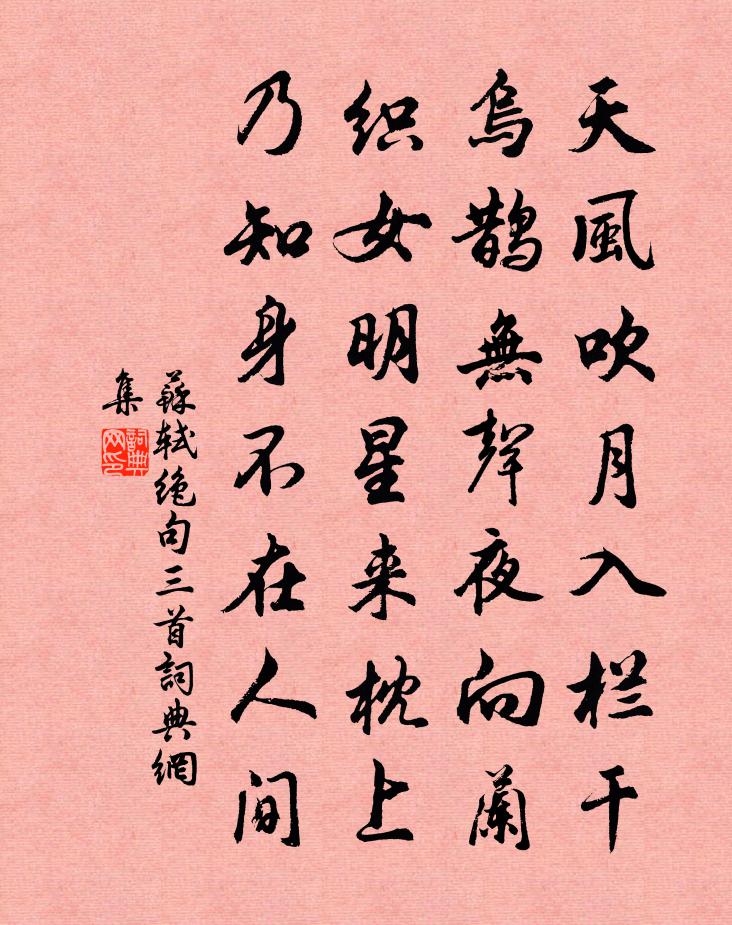 天風吹月入栏干
烏鵲無聲夜向蘭
织女明星来枕上
乃知身不在人间
蘇轼绝句三首詞典網
集
詞典网印